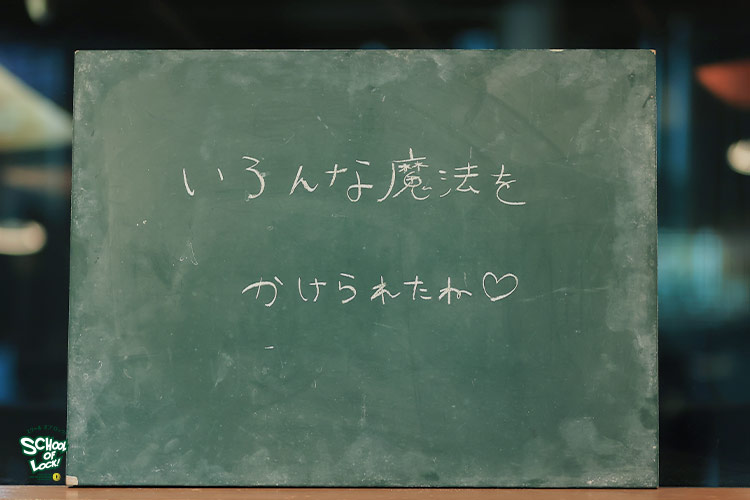 いろんな魔法を
かけられたね♡
SCHOOL
OF
LOCK!